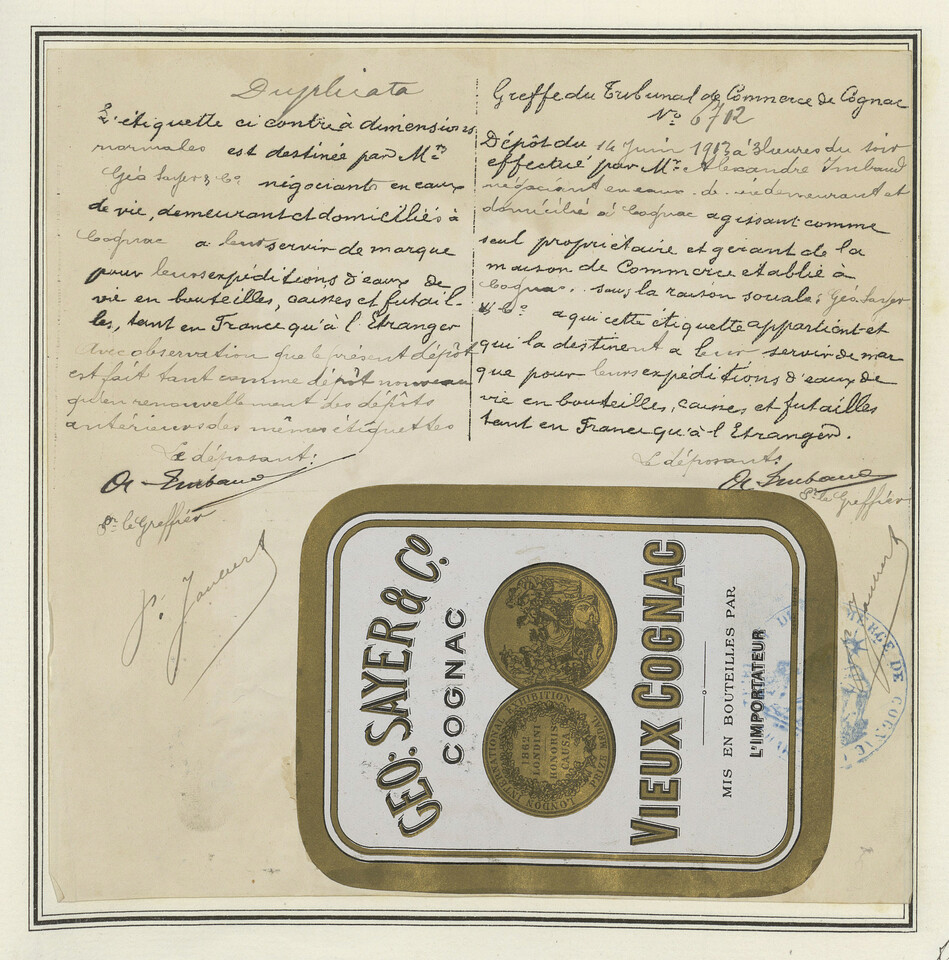 Duplicata
L'étiquette ci contre à dimensions
normales est destinée par Mrs
Géo Sayer & Co négociants en eaux
de vie, demeurant et domiciliés à
Cognac a leur servir de marque
pour leurs expéditions d'eaux de
vie en bouteilles, caisses et futail-
les, tant en France qu'à l'Etranger
Avec observation que le présent dépôt
est fait tant comme dépôt nouveau
qu'en renouvellement des dépôts
antérieurs des mêmes étiquettes
Le déposant:
A. Imbaud
Pr. le Greffier
P.
Greffe du Tribunal de Commerce de Cognac
No 6712
Dépôt du 14 Juin 1913 à 3 heures du soir
effectué par Mr. Alexandre Imbaud
négociant en eaux de vie demeurant et
domicilié à Cognac agissant comme
seul propriétaire et gérant de la
maison de Commerce établie à
Cognac sous la raison sociale: Géo Sayer
& Co a qui cette étiquette appartient et
qui la destinent a leur servir de mar
que pour leurs expéditions d'eaux de
vie en bouteilles, caisses et futailles
tant en France qu'à l'Etranger.
Le déposant:
A. Imbaud
Pr. le Greffier
GEO: SAYER & Co.
COGNAC
LONDON INTERNATIONAL EXHIBITION PRIZE MEDAL
1862
LONDINI
HONORIS
CAUSA
VIEUX COGNAC
MIS EN BOUTEILLES PAR
L'IMPORTATEUR
DE COGNAC